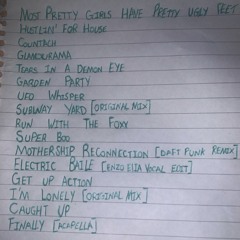 MOST PRETTY GIRLS HAVE PRETTY UGLY FEET
HUSTLIN' FOR HOUSE
COUNTACH
GLAMOURAMA
TEARS IN A DEMON EYE
GARDEN PARTY
UFO WHISPER
SUBWAY YARD [ORIGINAL MIX]
RUN WITH THE FOXX
SUPER BOO
MOTHERSHIP RECONNECTION [DAFT PUNK REMIX]
ELECTRIC BAILE [ENZO ELIA VOCAL EDIT]
GET UP ACTION
I'M LONELY [ORIGINAL MIX]
CAUGHT UP
FINALLY [ACAPELLA]